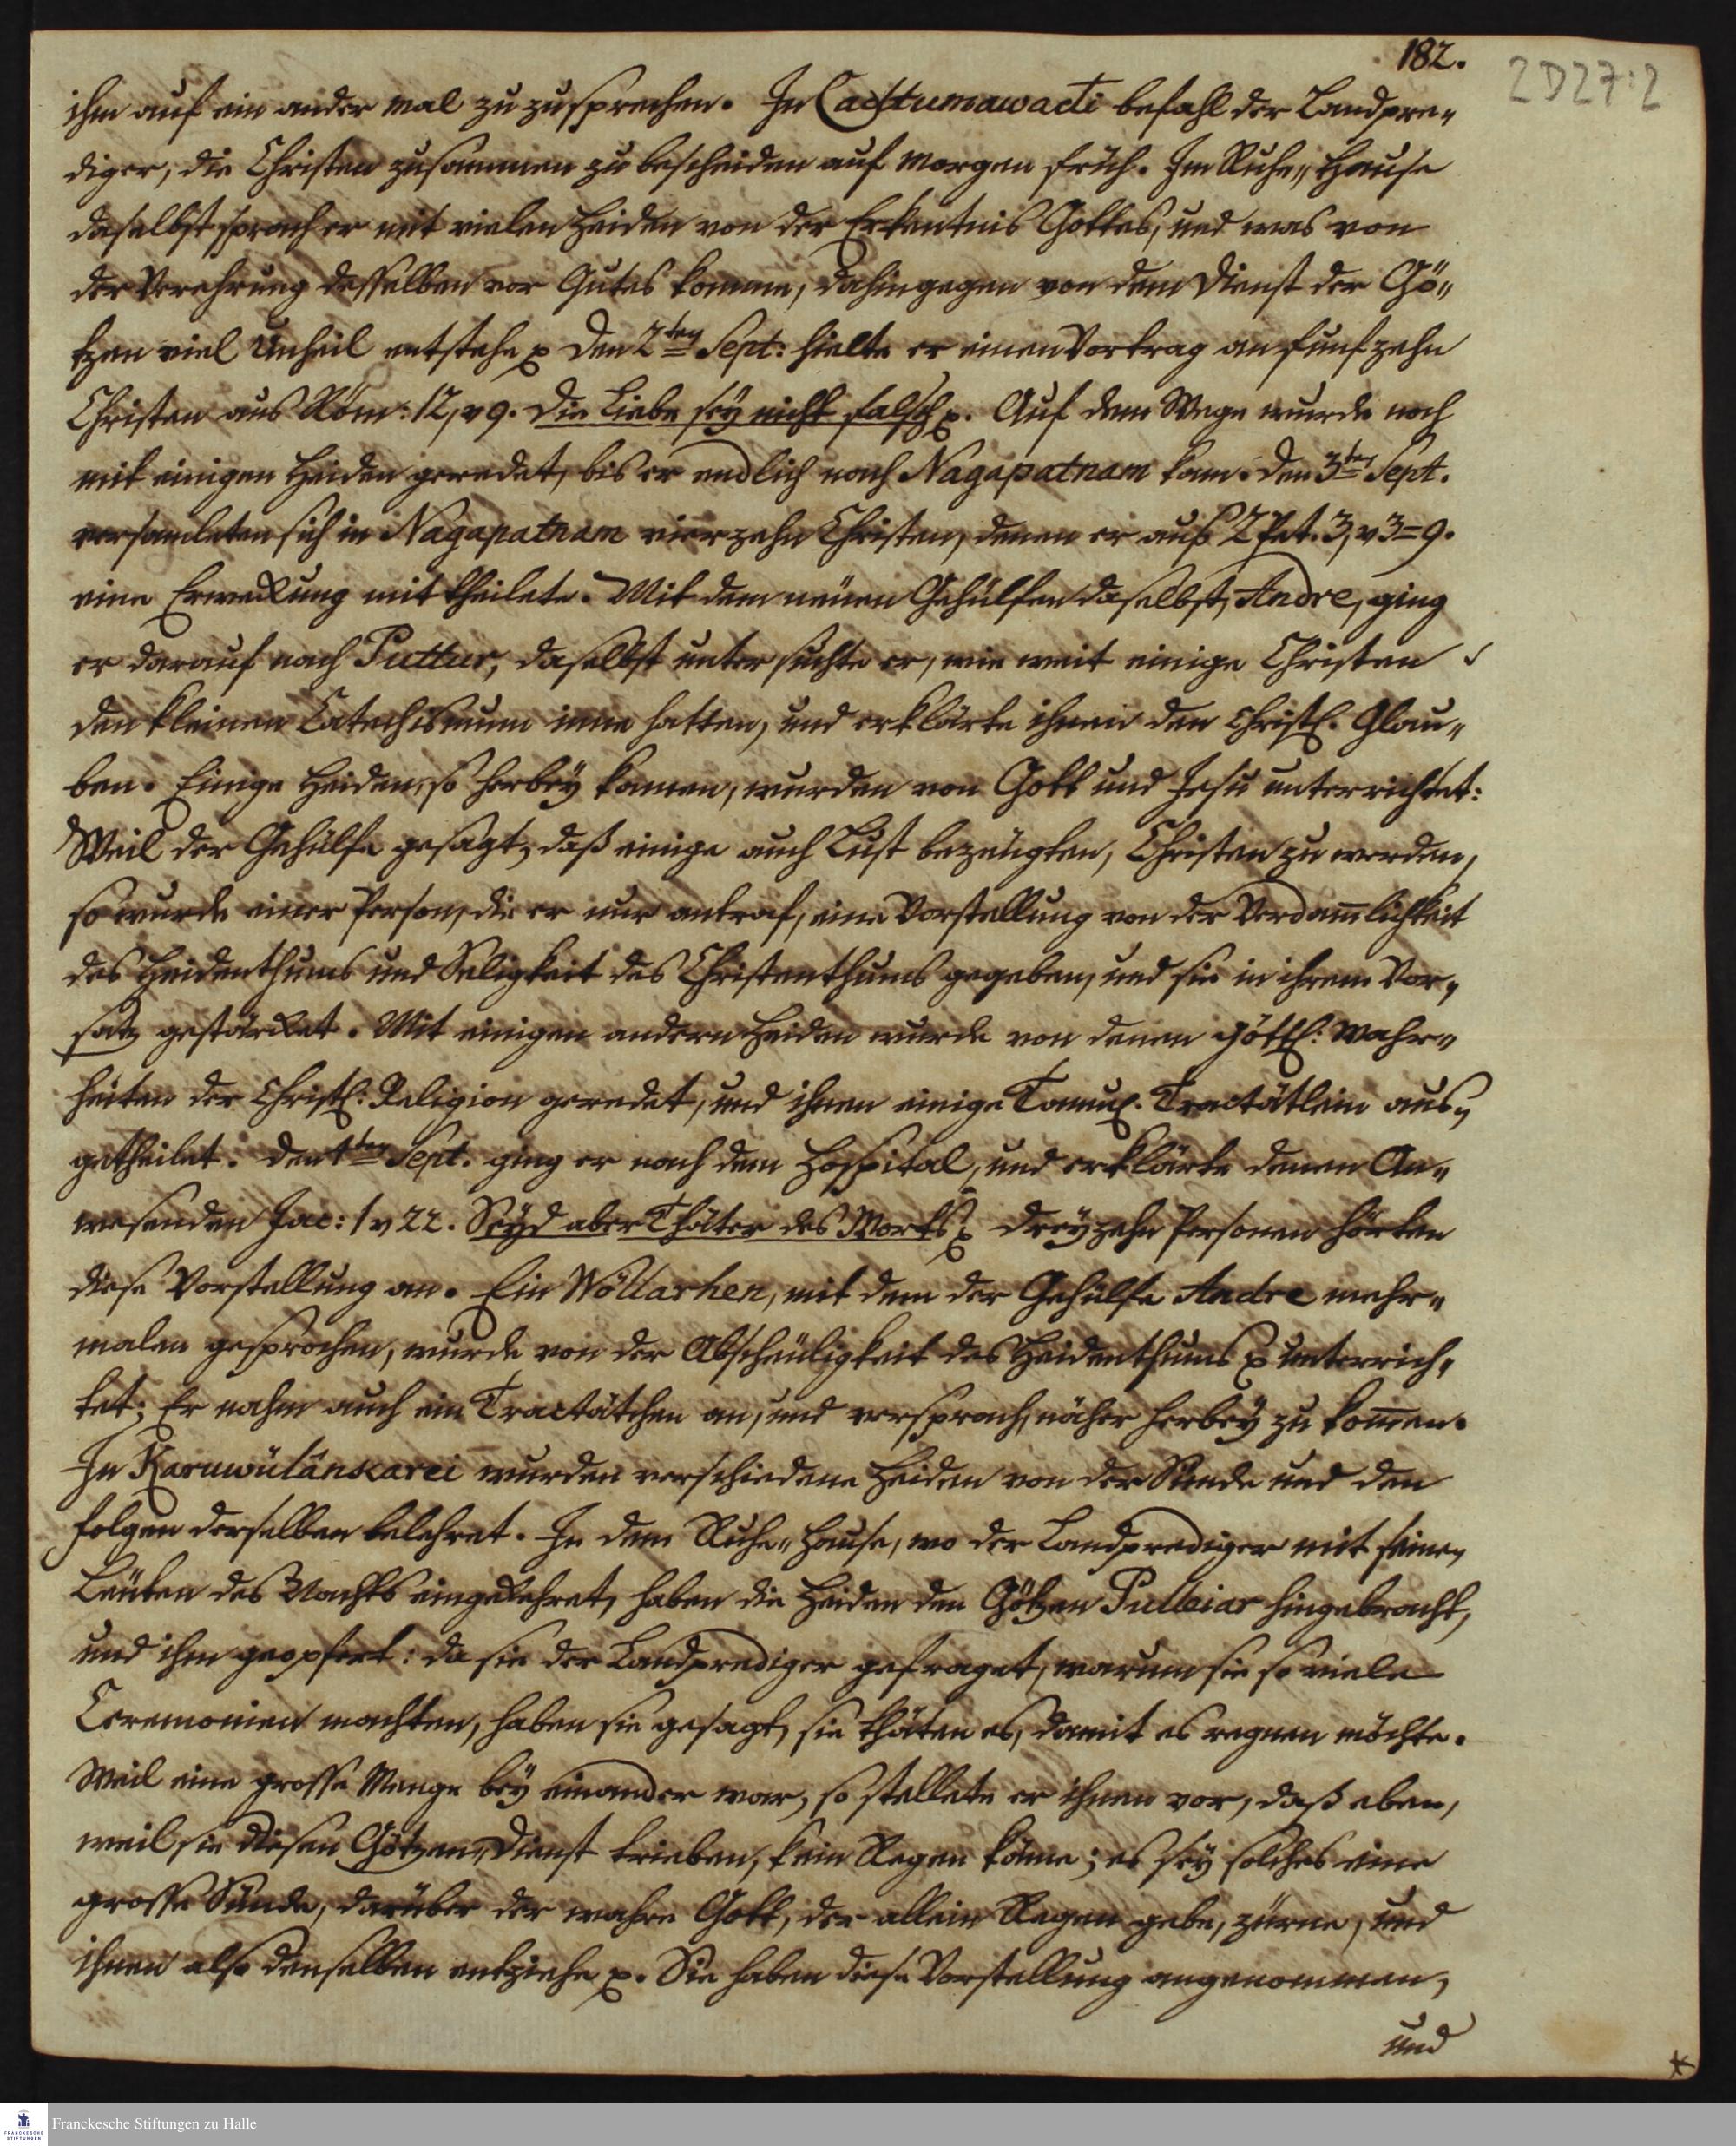 182.
2D27:2
ihm auf ein ander mal zu zusprechen. In Cattumawadi befahl der Landpre„
diger, die Christen zusammen zu bescheiden auf morgen früh. Im Ruhe„Hause
daselbst sprach er mit vielen Heiden von der Erkentnis Gottes, und was von
der Verehrung desselben vor Gutes komme, dahingegen von dem Dienst der Gö„
tzen viel Unheil entstehe p den 2ten Sept: hielte er einen Vortrag an funfzehn
Christen aus Röm: 12, v 9. die Liebe sey nicht falsch p. Auf dem Wege wurde noch
mit einigen Heiden geredet, bis er endlich nach Nagapatnam kam. den 3ten Sept.
versamleten sich in Nagapatnam vierzehn Christen, denen er aus 2 Pet. 3, v 3=9.
eine Erweckung mittheilete. Mit dem neuen Gehülfen daselbst, Andre, ging
er darauf nach Puttur; daselbst untersuchte er, wie weit einige Christen
den kleinen Catechismum inne hatten, und erklärte ihnen den Christl. Glau„
ben. Einige Heiden, so herbey kamen, wurden von Gott und Jesu unterrichtet:
Weil der Gehülfe gesagt, daß einige auch Lust bezeugten, Christen zu werden,
so wurde einer Person, die er nur antraf, eine Vorstellung von der Verdam̄lichkeit
des Heidenthums und Seligkeit des Christenthums gegeben, und sie in ihrem Vor„
satz gestärcket. Mit einigen andern Heiden wurde von denen göttl: Wahr„
heiten der Christl: Religion geredet, und ihnen einige Tamul. Tractätlein aus„
getheilet. den 4ten Sept. ging er nach dem Hospital, und erklärte denen An„
wesenden Jac: 1 v 22. Seyd aber Thäter des Worts p dreyzehn Personen hörten
diese Vorstellung an. Ein Wöllarhen, mit dem der Gehülfe Andre mehr„
malen gesprochen, wurde von der Abscheuligkeit des Heidenthums p unterrich„
tet; Er nahm auch ein Tractätchen an, und versprach, näher herbey zu kom̄en.
In Karuwülänkarei wurden verschiedene Heiden von der Sünde und den
folgen derselben belehret. In dem Ruhe„Hause, wo der Landprediger mit seinen
Leuten des Nachts eingekehret, haben die Heiden den Götzen Pulleiar hingebracht,
und ihm geopfert: da sie der Landprediger gefraget, warum sie so viele
Ceremonien machten, haben sie gesagt, sie thäten es, damit es regnen möchte.
Weil eine grosse Menge bey einander war, so stellete er ihnen vor, daß eben,
weil sie diesen Götzen„Dienst trieben, kein Regen käme; es sey solches eine
grosse Sünde, darüber der wahre Gott, der allein Regen gebe, zürne, und
ihnen also denselben entziehe p. Sie haben diese Vorstellung angenommen,
und
Franckesche Stiftungen zu Halle
FRANCKESCHE
STIFTUNGEN